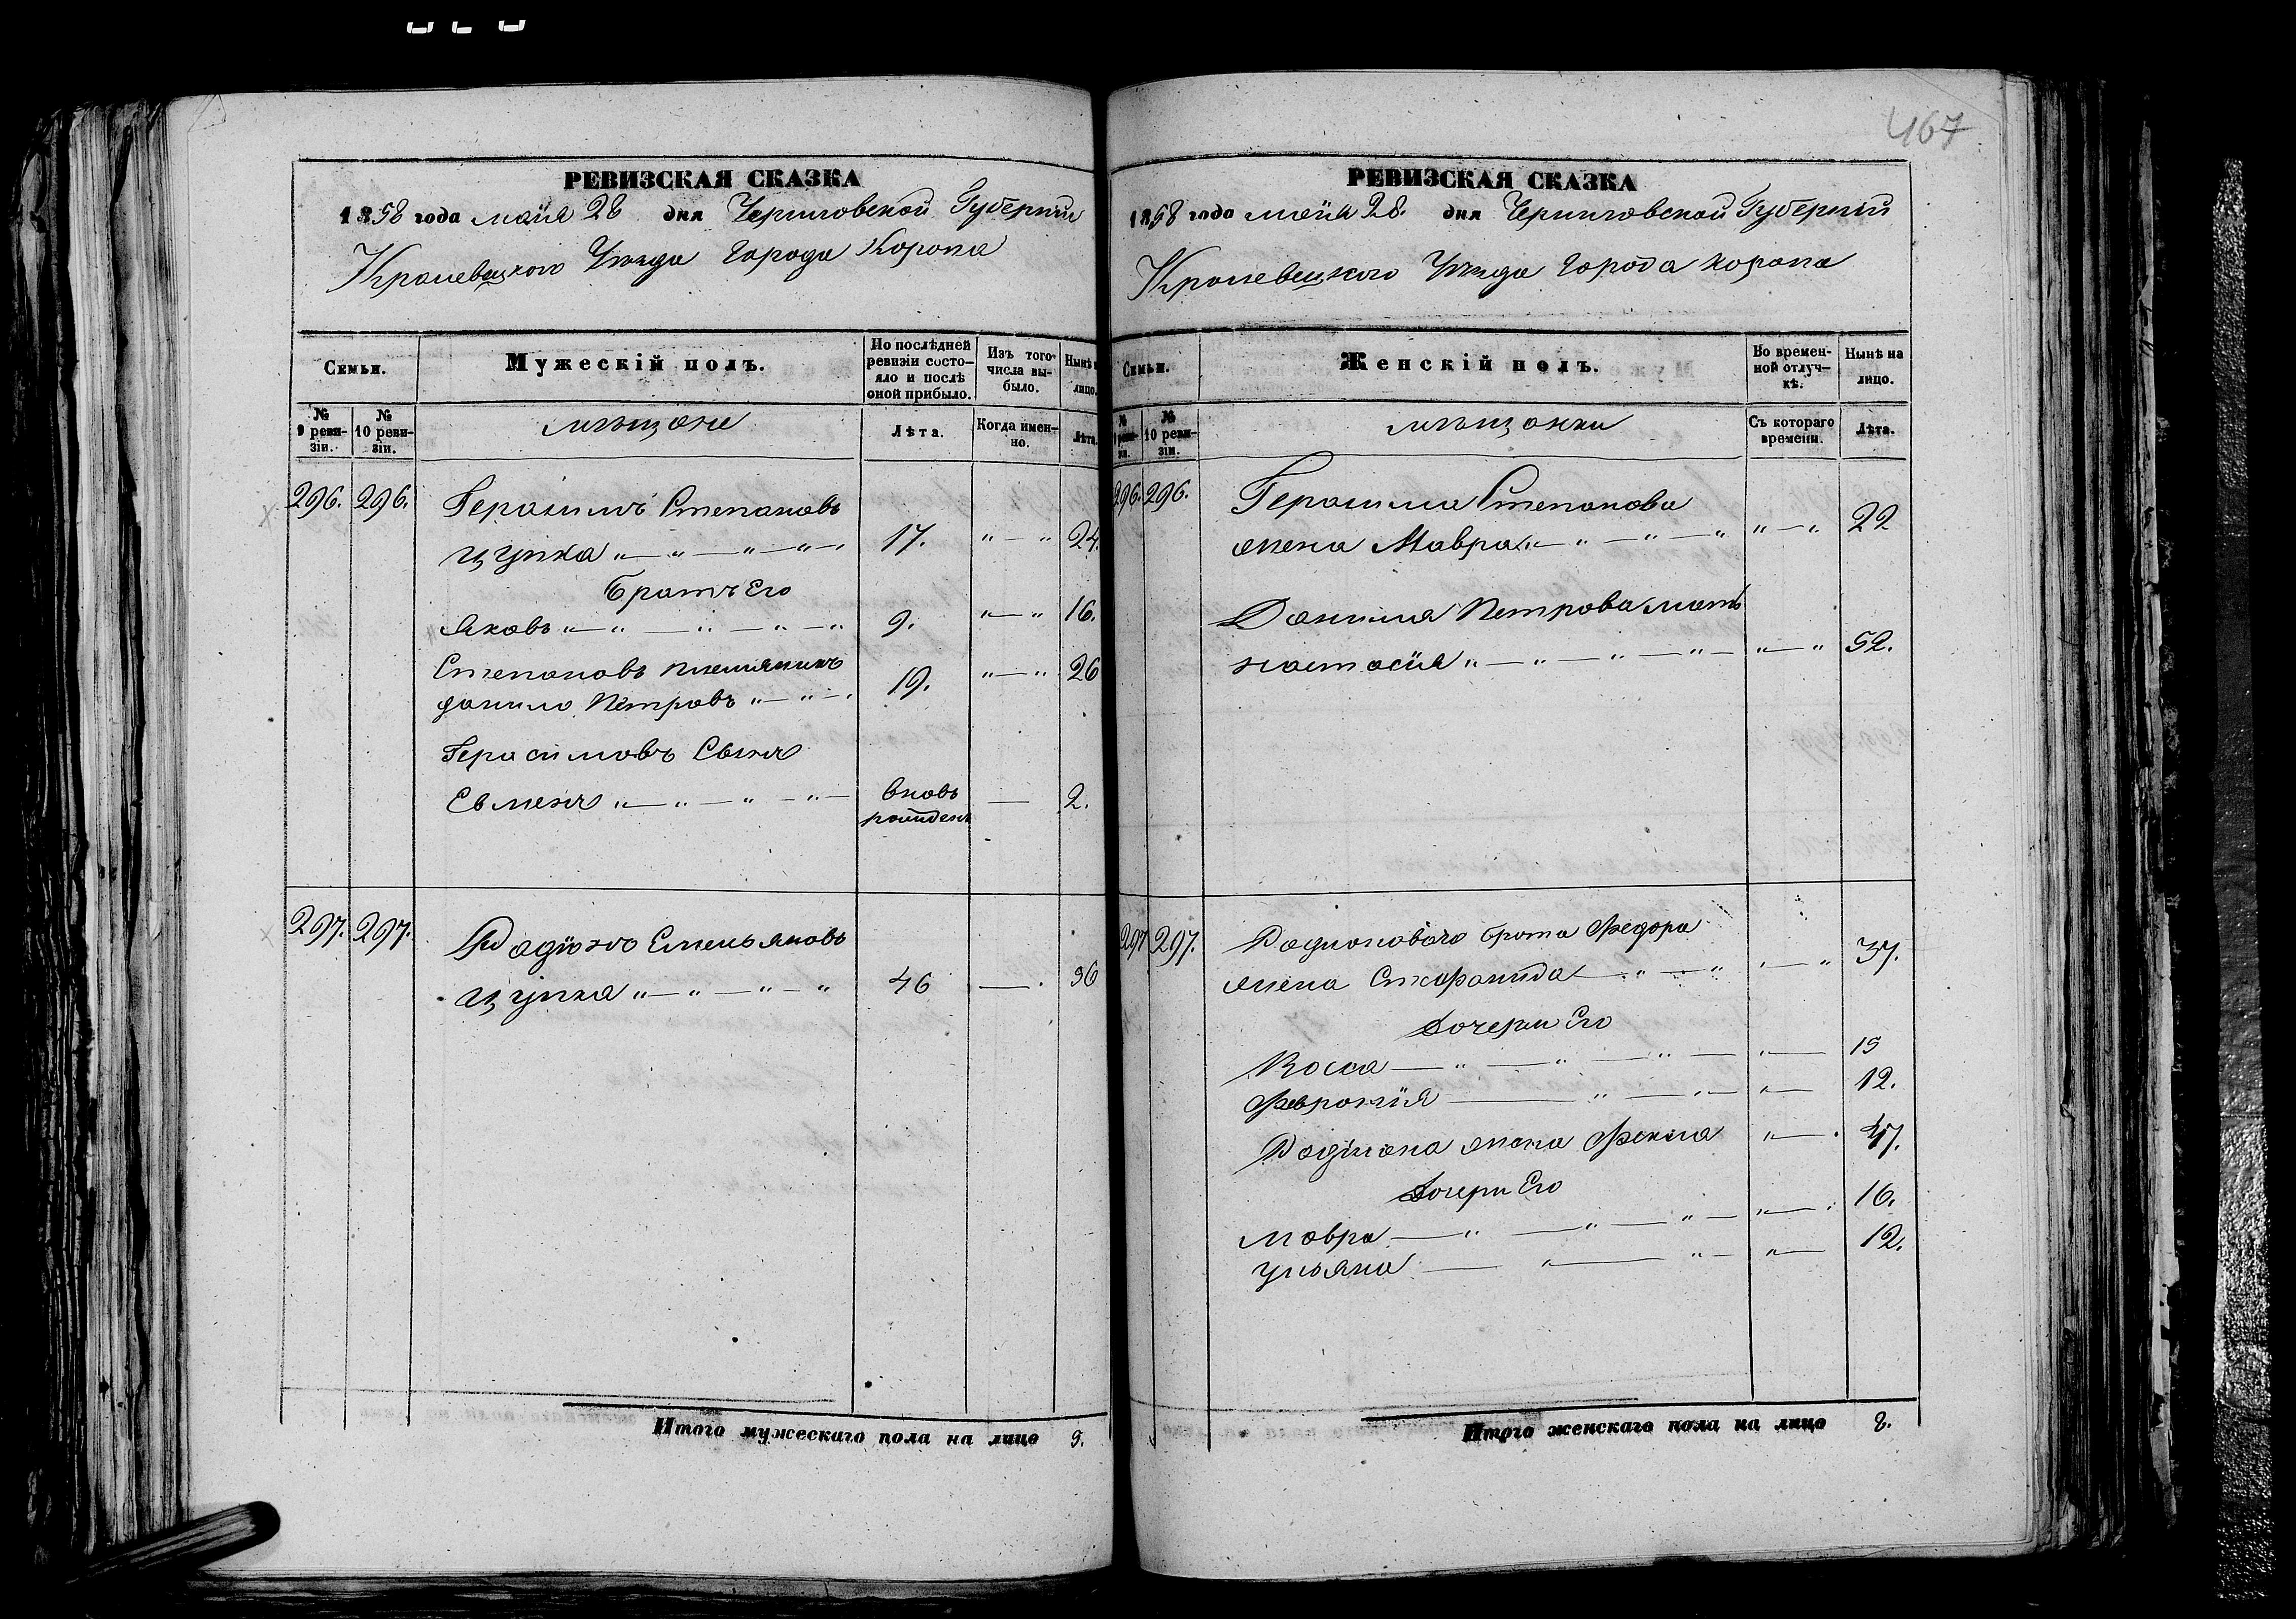 467
РЕВИЗСКАЯ СКАЗКА
1858 года маия 28 дня Черниговской Губернии
Кролевецкого Уезда Города Коропа
Семьи.
Мужескій полъ.
По послѣдней ревизіи состояло и послѣ оной прибыло.
Изъ того числа выбыло.
Нынѣ на лицо.
№ 9 ревизіи.
№ 10 ревизіи.
мѣщане
Лѣта.
Когда именно.
Лѣта.
296. 296. Герасимъ Степановъ
Цупка „ — „ — „ — „ — 17. „ — „ 24.
Братъ Его
Яковъ „ — „ — „ — „ — „ 9. „ — „ 16.
Степановъ племянникъ
данило Петровъ „ — „ — 19. „ — „ 26
Герасимовъ Сынъ
Евменъ „ — „ — „ — „ — вновь рожденъ — 2.
297. 297. Радіонъ Емельяновъ
Цупка „ — „ — „ — „ 46 — 56
Итого мужескаго пола на лицо 5.
РЕВИЗСКАЯ СКАЗКА
1858 года майя 28. дня Черниговской Губерніи
Кролевецкого Уезда Города Коропа
Семьи.
Женскій полъ.
Во временной отлучкѣ.
Нынѣ на лицо.
№ 9 ревизіи.
№ 10 ревизіи.
мѣщанки
Съ котораго времени.
Лѣта.
296. 296. Герасима Степанова
жена Мавра „ — „ — „ — „ „ — „ 22
Данила Петрова мать
настасія „ — „ — „ — „ — „ — „ 52.
297 297. Радионового брата Федора
жена Стефанида — „ — „ „ — „ 37.
Дочери Его
Васса — „ — „ — „ — „ — 15
Феврония — „ — „ — „ — 12.
Радіиона жена Фекла „ — 47.
Дочери Его
Мавра — „ — „ — „ — „ — 16.
Ульяна — „ — „ — „ — 12.
Итого женскаго пола на лицо 8.